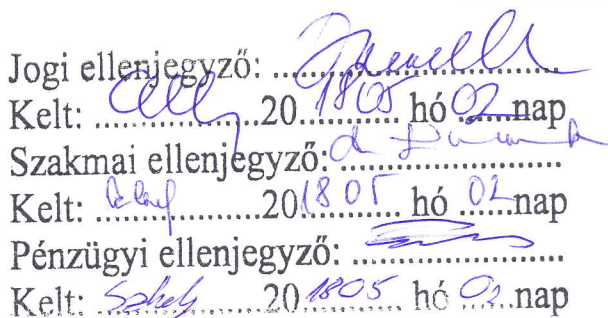 Jogi ellenjegyző: ........................
Kelt: ............... 2018 05 hó 02 nap
Szakmai ellenjegyző: ........................
Kelt: ............... 2018 05 hó 02 nap
Pénzügyi ellenjegyző: ........................
Kelt: ............... 2018 05 hó 02 nap